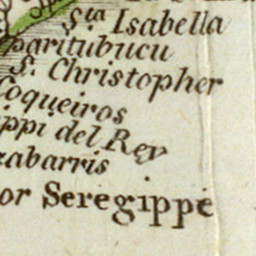 Sta Isabella
paritubucu
S. Christopher
Coqueiros
ippi del Rey
zabarris
or Seregippe